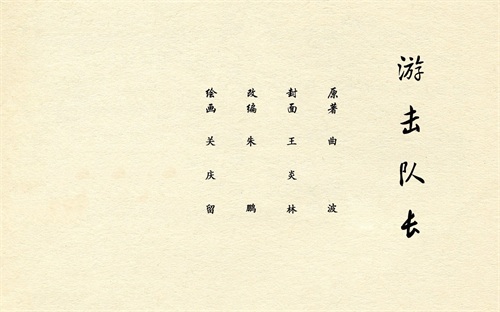 游击队长
原著 曲波
封面 王炎林
改编 朱鹏
绘画 关庆留